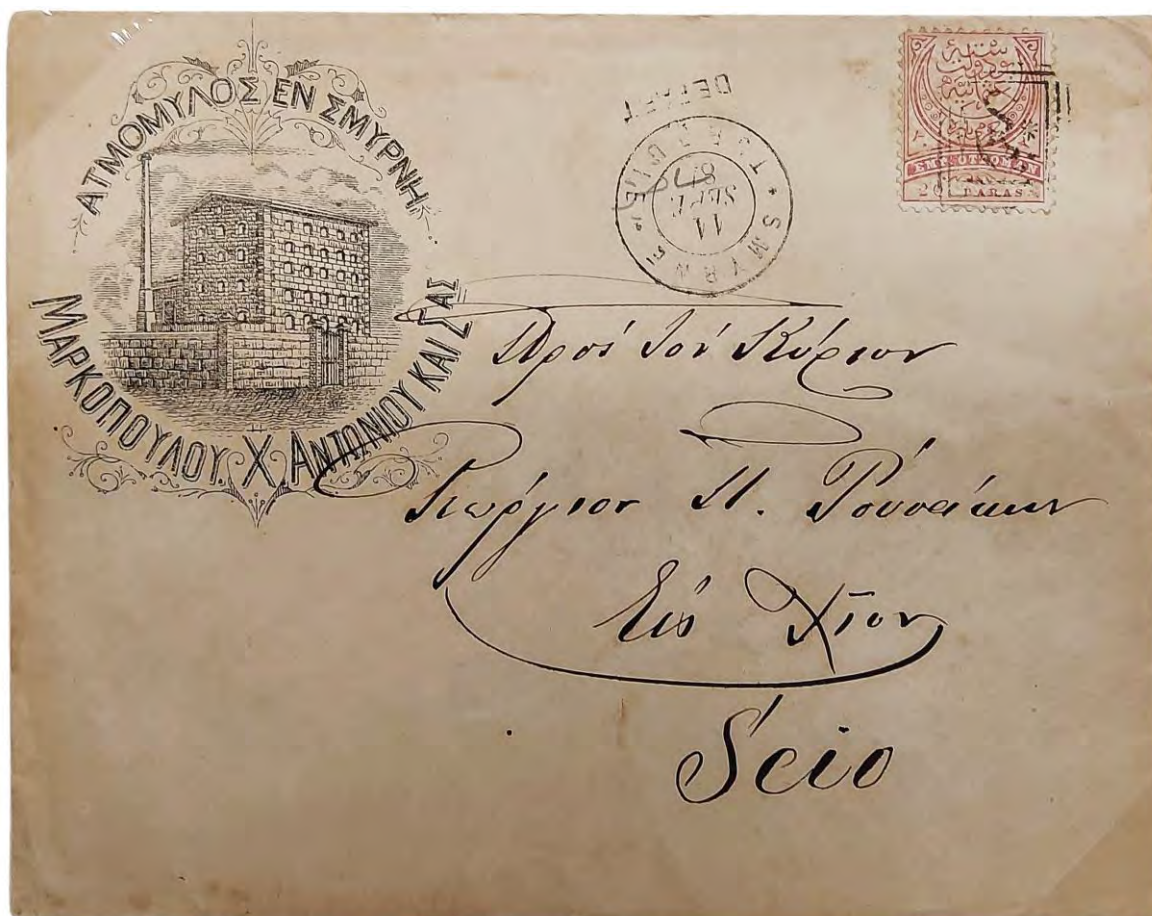 ΑΤΜΟΜΥΛΟΣ ΕΝ ΣΜΥΡΝΗ
ΜΑΡΚΟΠΟΥΛΟΥ. Χ. ΑΝΤΩΝΙΟΥ ΚΑΙ ΣΙΑΣ
DEPART
SMYRNE
11
SEPT
EMP. OTTOMAN
20 PARAS
Πρός τόν Κύριον
Γεώργιον Π.
Εἰς Χῖον
Scio